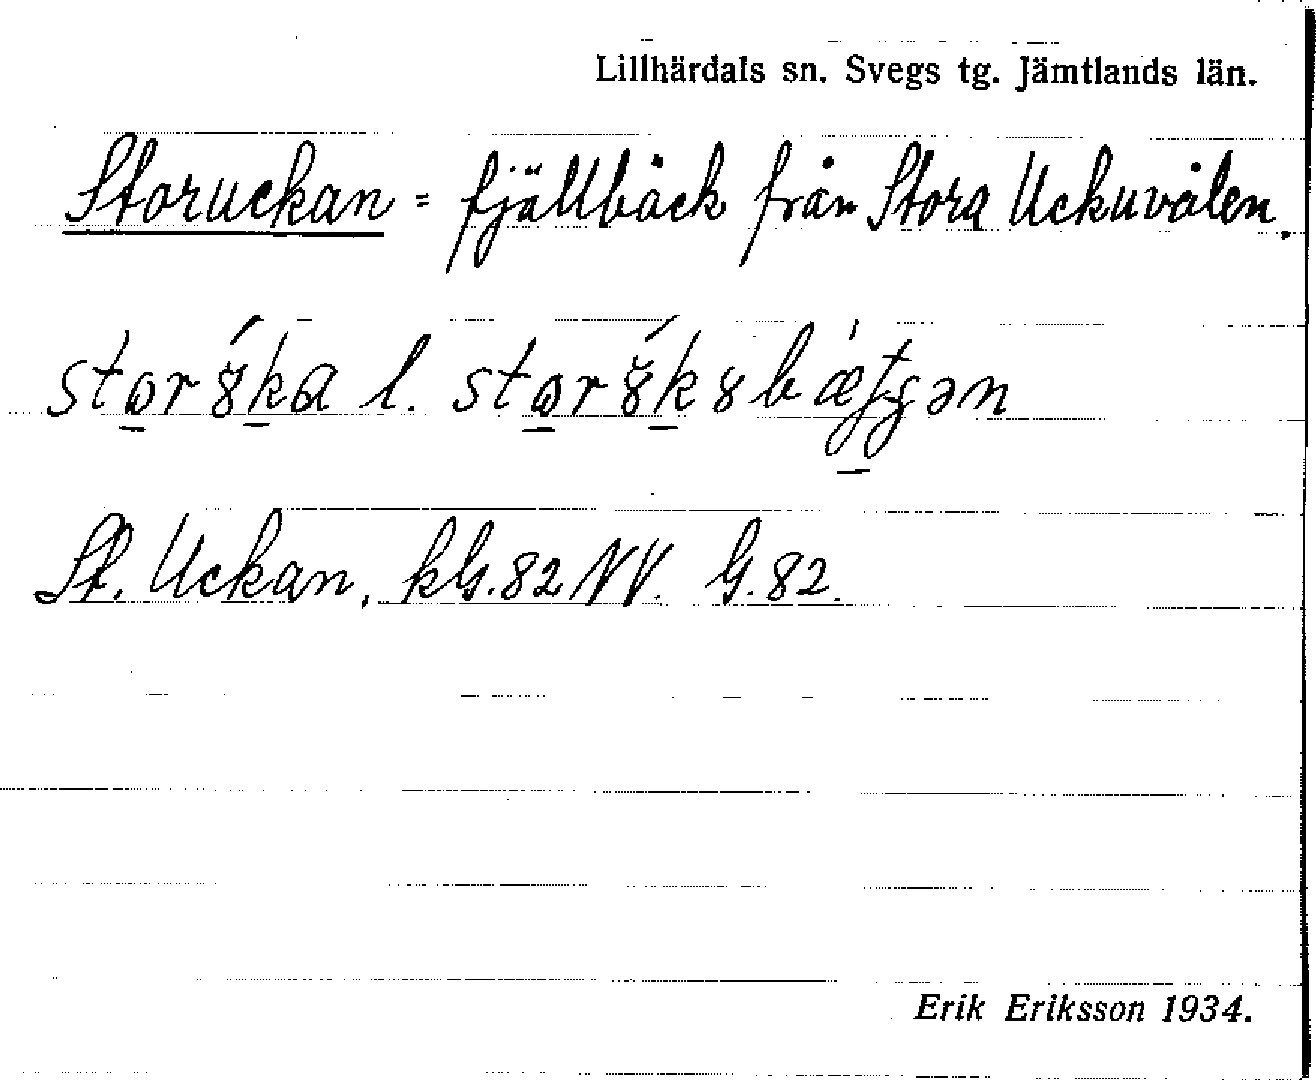 Lillhärdals sn. Svegs tg. Jämtlands län.
Storuckan = fjällbäck från Stora Uckuvålen.
l.
St. Uckan, kbl. 82 NV. G. 82.
Erik Eriksson 1934.